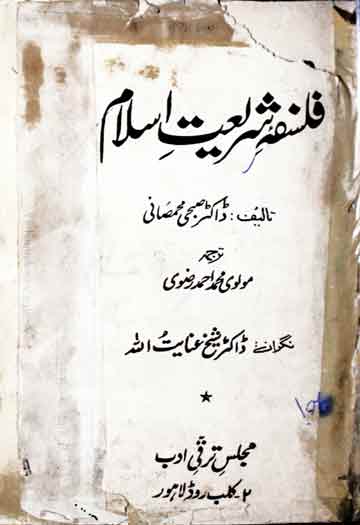 فلسفۂ شریعتِ اسلام
تالیف : ڈاکٹر صبحی محمصانی
ترجمہ
مولوی محمد احمد رضوی
نگران : ڈاکٹر شیخ عنایت اللہ
مجلس ترقیٔ ادب
۲۔ کلب روڈ لاہور